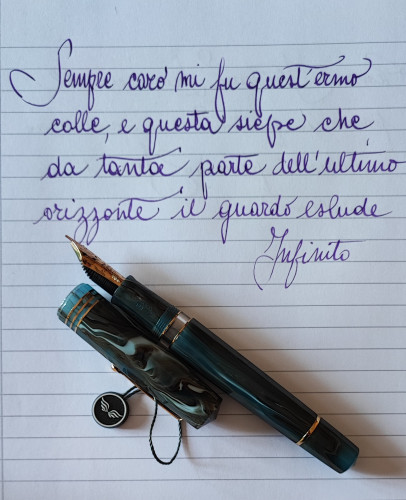 Sempre caro mi fu quest'ermo
colle, e questa siepe che
da tanta parte dell'ultimo
orizzonte il guardo eslude
Infinito